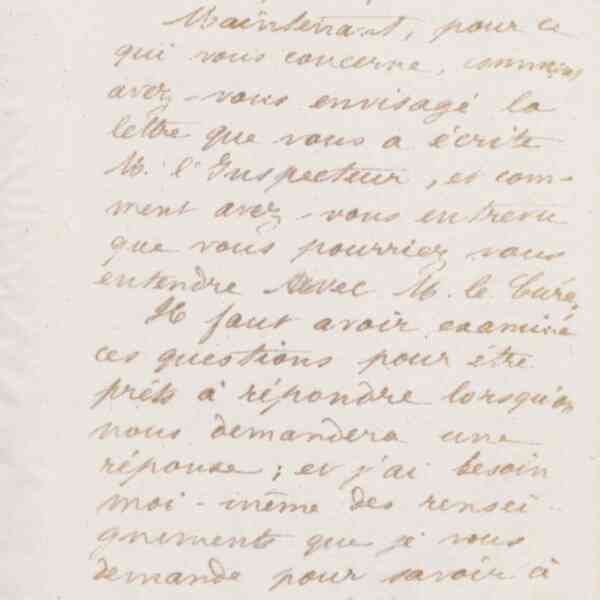 Maintenant, pour ce
qui vous concerne, comment
avez-vous envisagé la
lettre que vous a écrite
M. l'Inspecteur, et com-
ment avez-vous entrevu
que vous pourriez vous
entendre avec M. le Curé,
Il faut avoir examiné
ces questions pour être
prêts à répondre lorsqu'on
nous demandera une
réponse ; et j'ai besoin
moi-même des rensei-
gnements que je vous
demande pour savoir à